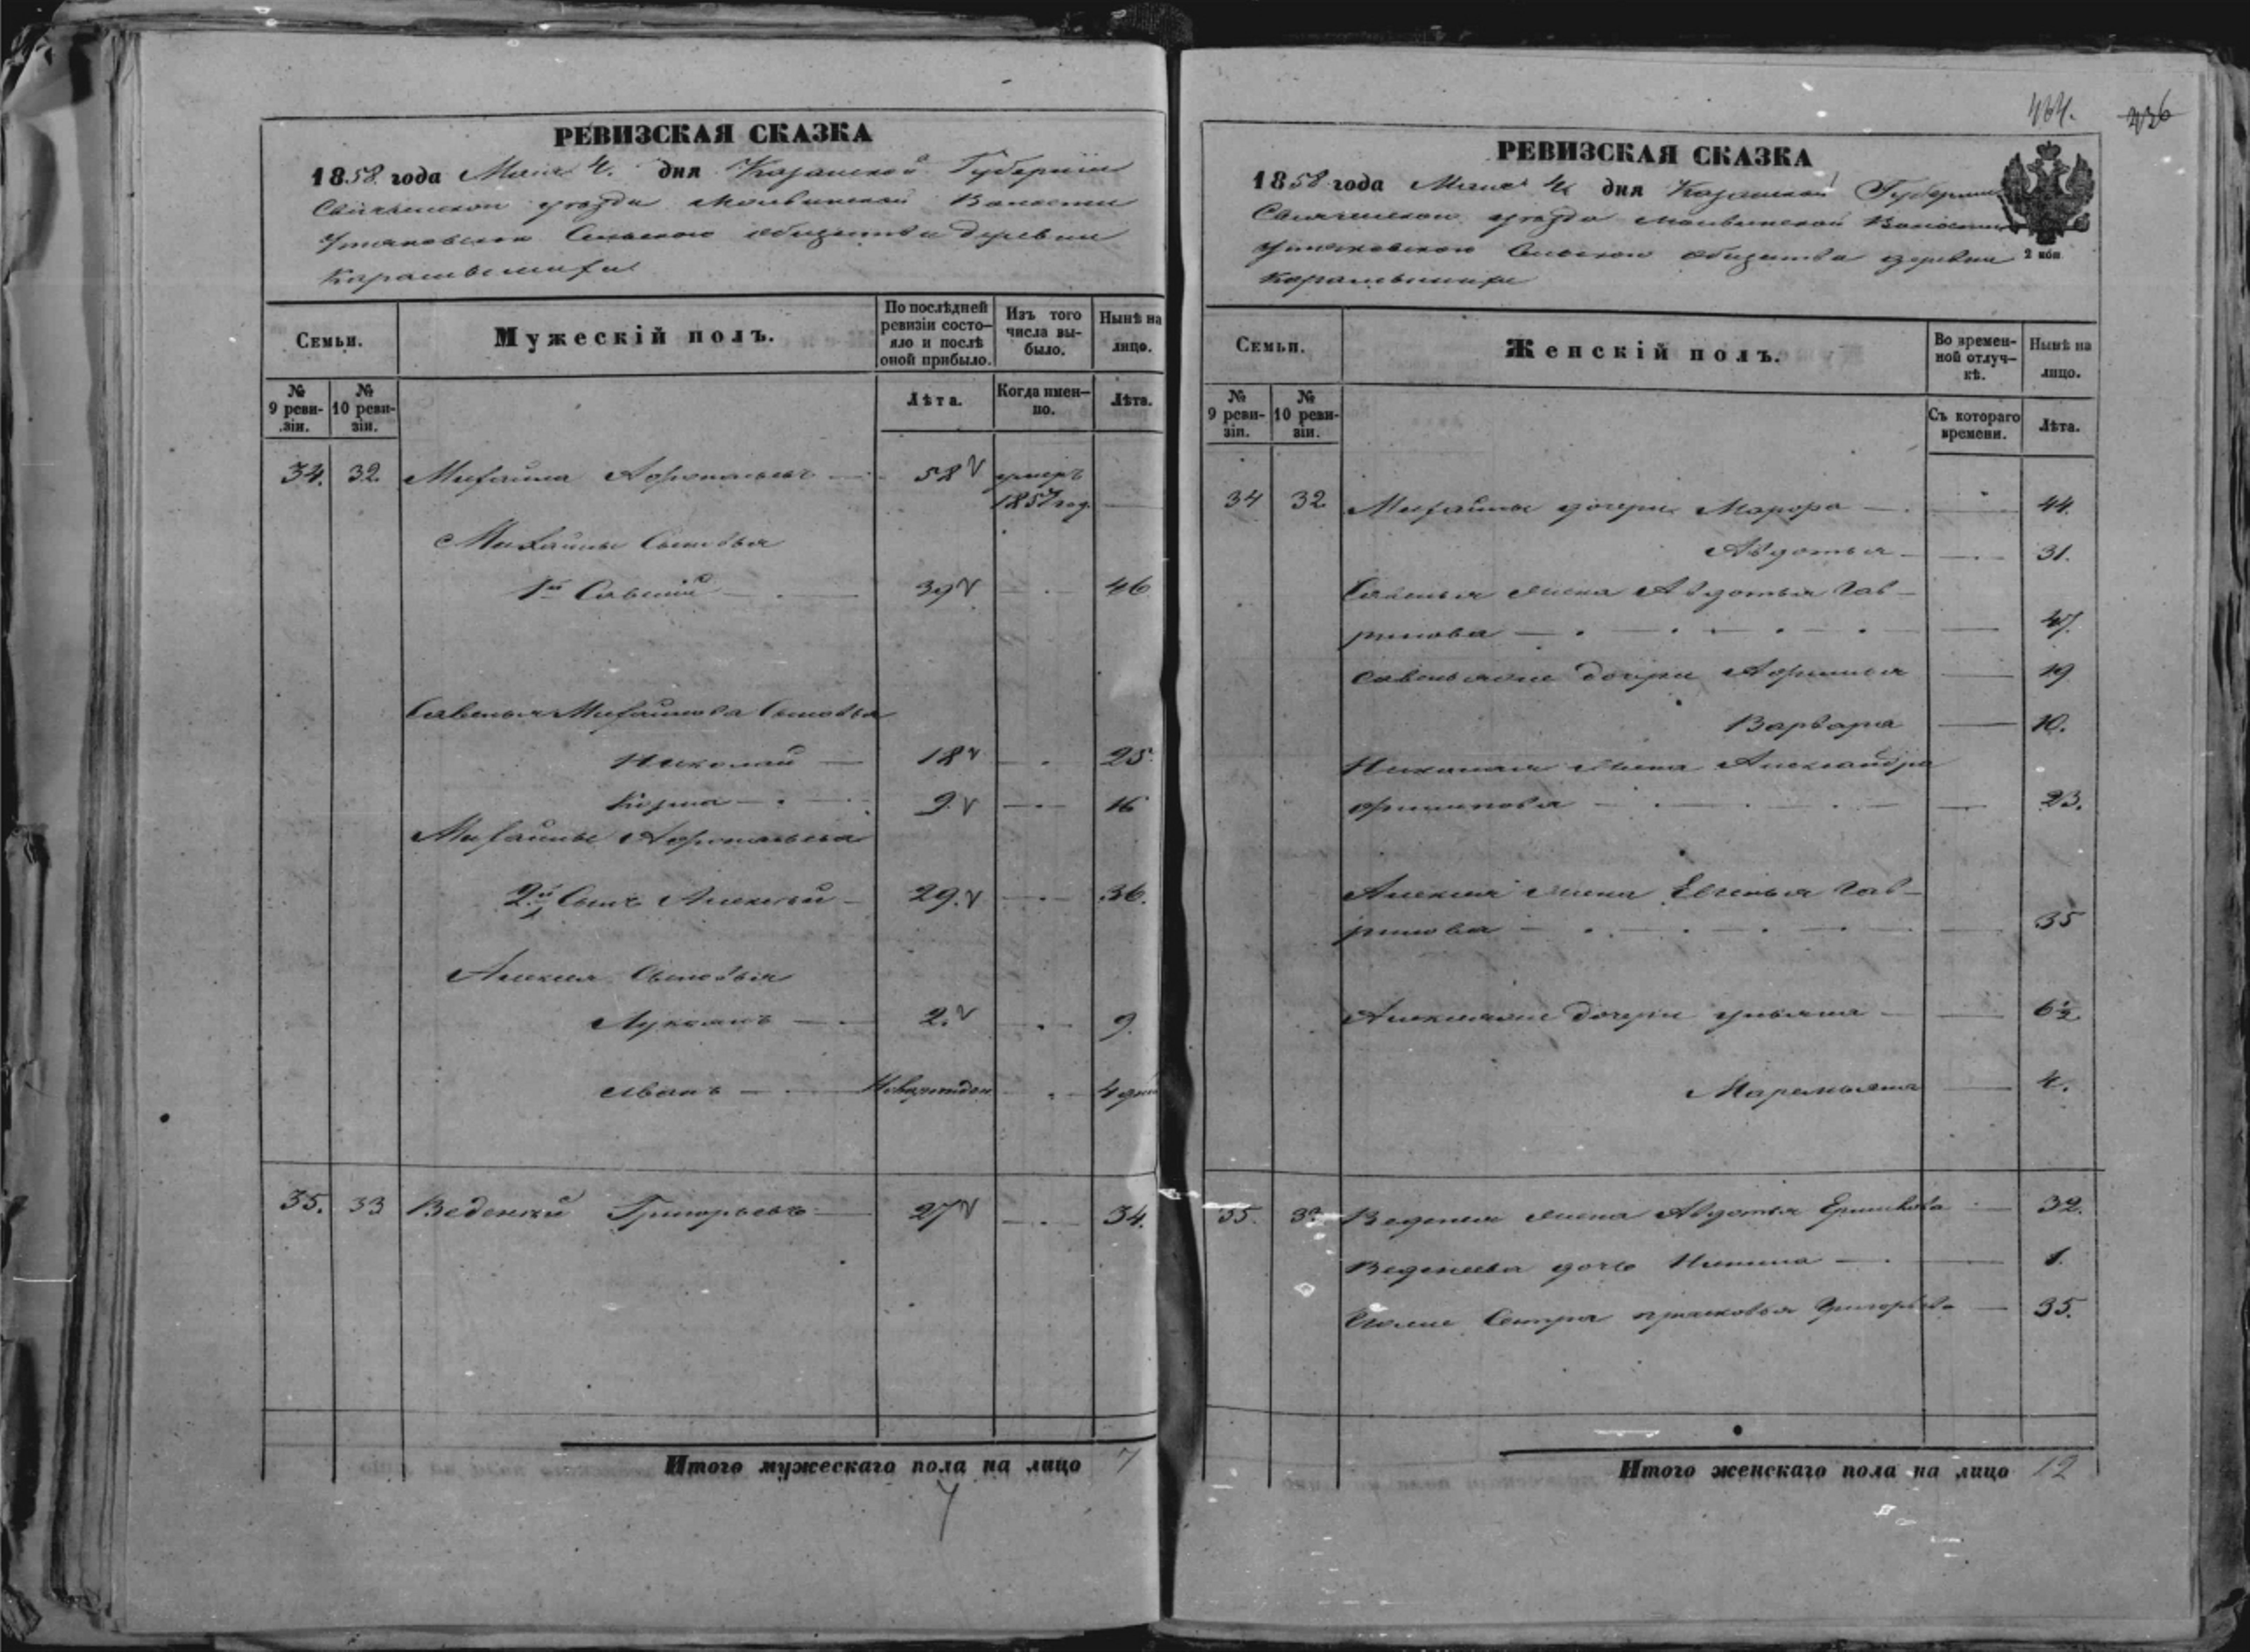 РЕВИЗСКАЯ СКАЗКА
1858 года Мая 4. дня Казанской Губернии
Свияжскои уезда Молвинской Волости
Утяковскаго Сельскаго общества деревни
СЕМЬИ.
Мужескій полъ.
По послѣдней ревизіи состояло и послѣ оной прибыло.
Изъ того числа выбыло.
Нынѣ на лицо.
№ 9 ревизіи.
№ 10 ревизіи.
Лѣта.
Когда именно.
Лѣта.
34. 32. Михайла 58 умеръ
1857 год
Михайлы Сыновья
1й Савелій 39 46
Савелья Михайлова Сыновья
Николай 18 25
Козма 9 16
Михайлы
2й Сынъ Алексѣй 29. 36.
Алексея Сыновья
Лукоянъ 2. 9.
Иванъ Новорожден 4 дни
35. 33 Веденей Григорьевъ 27 34.
Итого мужескаго пола на лицо 7
7
464. 236
РЕВИЗСКАЯ СКАЗКА
1858 года Мая 4 дня Казанской Губернии
Свияжскои уезда Молвинской Волости
Утяковскаго Сельскаго общества деревни
2 коп
СЕМЬИ.
Женскій полъ.
Во временной отлучкѣ.
Нынѣ на лицо.
№ 9 ревизіи.
№ 10 ревизіи.
Съ котораго времени.
Лѣта.
34 32 Михайлы дочери Марфа 44.
Авдотья 31.
Савелья жена Авдотья Гав-
рилова 47.
Савельявые дочери 19
Варвара 10.
Николая жена Александра
Филипова 23.
Алексея жена Евгенья Гав-
рилова 35
Алексеявые дочери Ульяна 6½
Маремьяна 4.
35. 33 Веденея жена Авдотья 32.
Веденеева дочь 1.
Сестра Прасковья Григорьева 35.
Итого женскаго пола на лицо 12